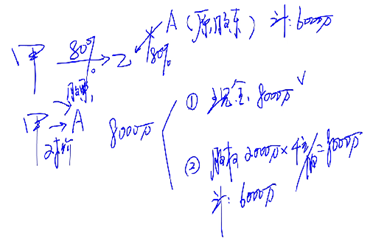 甲 80% 股票 → 乙 80% A (原股东) 计:6000万
甲 → A 对价 8000万
① 现金 8000万 √
② 股权 2000万×4元/股=8000万
计:6000万